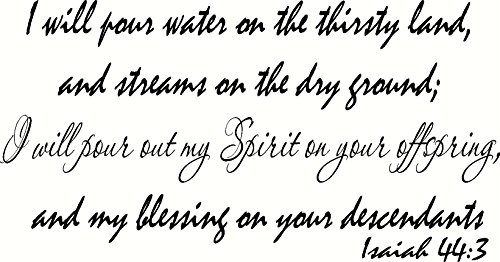 I will pour water on the thirsty land,
and streams on the dry ground;
I will pour out my Spirit on your offspring,
and my blessing on your descendants
Isaiah 44:3